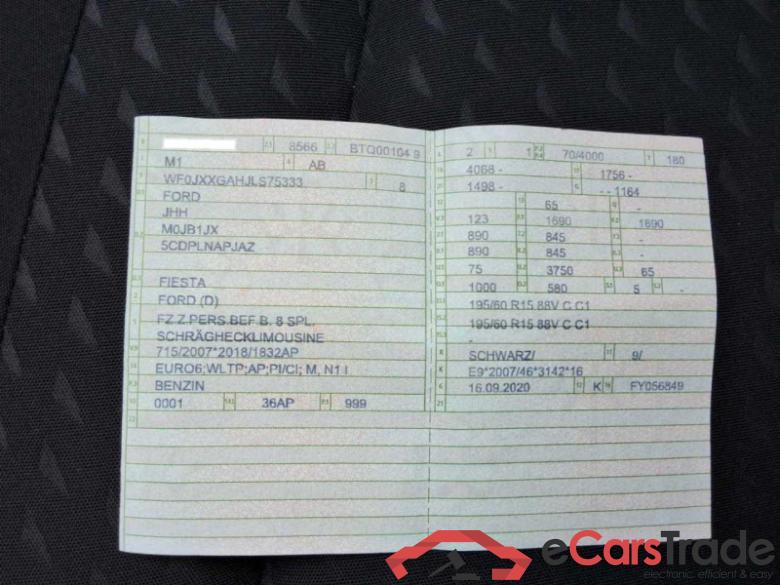 8566 BTQ00104 9
M1 AB
WF0JXXGAHJLS75333 8
FORD
JHH
M0JB1JX
5CDPLNAPJAZ
FIESTA
FORD (D)
FZ.Z.PERS.BEF.B. 8 SPL.
SCHRÄGHECKLIMOUSINE
715/2007*2018/1832AP
EURO6;WLTP;AP;PI/CI; M, N1 I
BENZIN
0001 36AP 999
2 1 70/4000 180
4068 - 1756 -
1498 - - - 1164
65 -
123 1690 1690
890 845 -
890 845 -
75 3750 65
1000 580 5 -
195/60 R15 88V C C1
195/60 R15 88V C C1
-
SCHWARZ/ 9/
E9*2007/46*3142*16
16.09.2020 K FY056849
eCarsTrade
electronic, efficient & easy